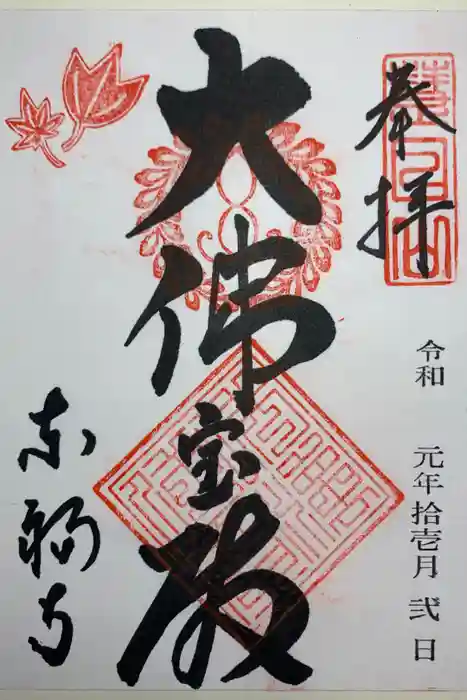 奉拝
慧日山
令和 元年拾壱月弐日
大佛宝殿
東福寺